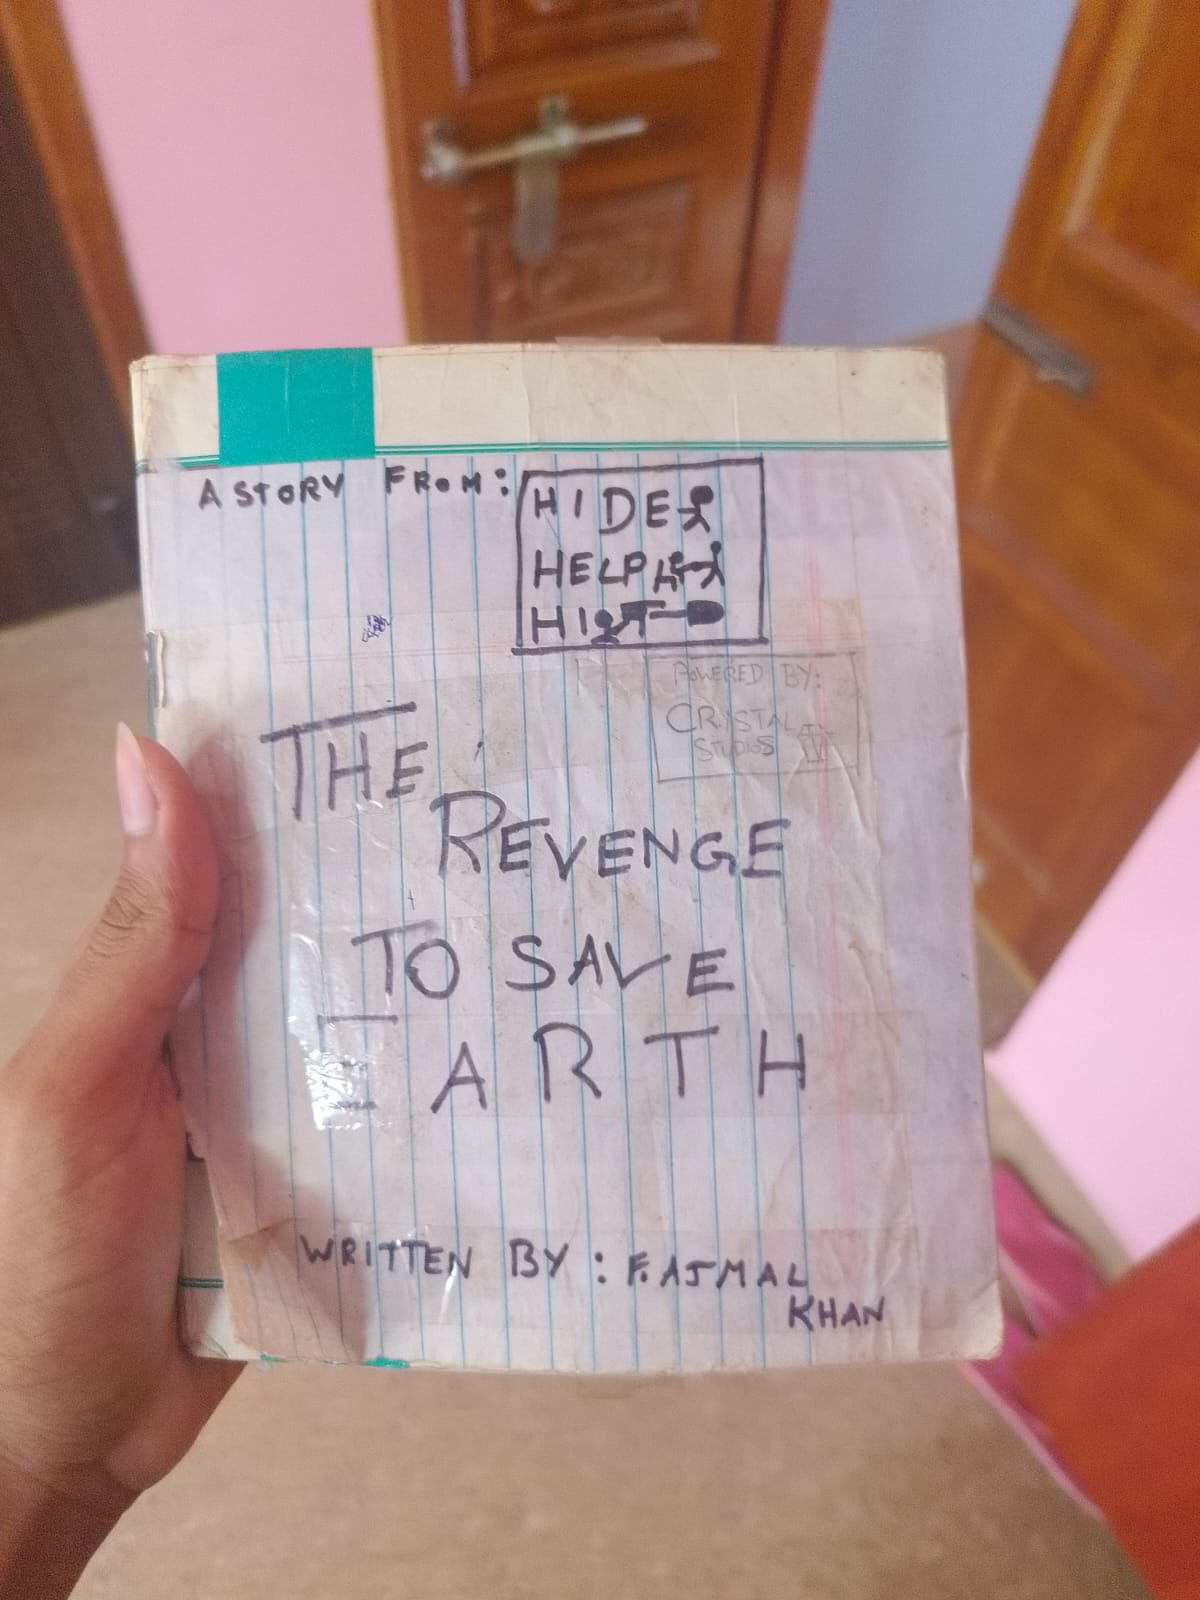 A STORY FROM:
HIDE
HELP
HIT
POWERED BY:
CRYSTAL
STUDIOS TV
THE
REVENGE
TO SAVE
EARTH
WRITTEN BY : F. AJMAL
KHAN